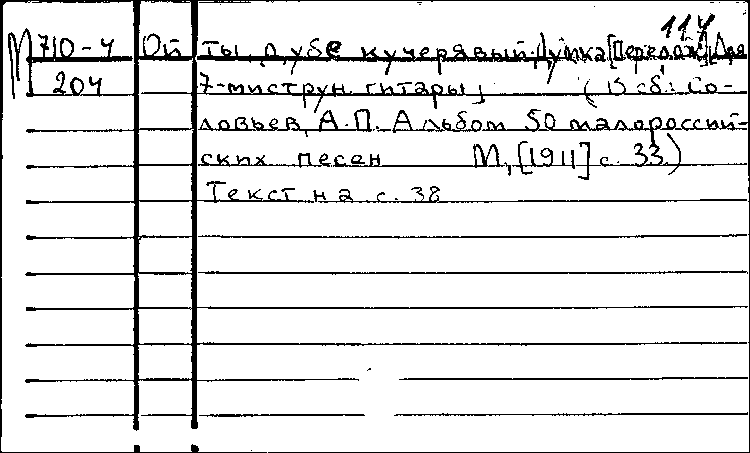 117
М 710-4 Ой ты, дубе кучерявый. Думка [Перелож.] Для
204 7-миструн. гитары] (В сб.: Со-
ловьев, А.П. Альбом 50 малороссий-
ских песен М, [1911] с. 33.)
Текст на с. 38